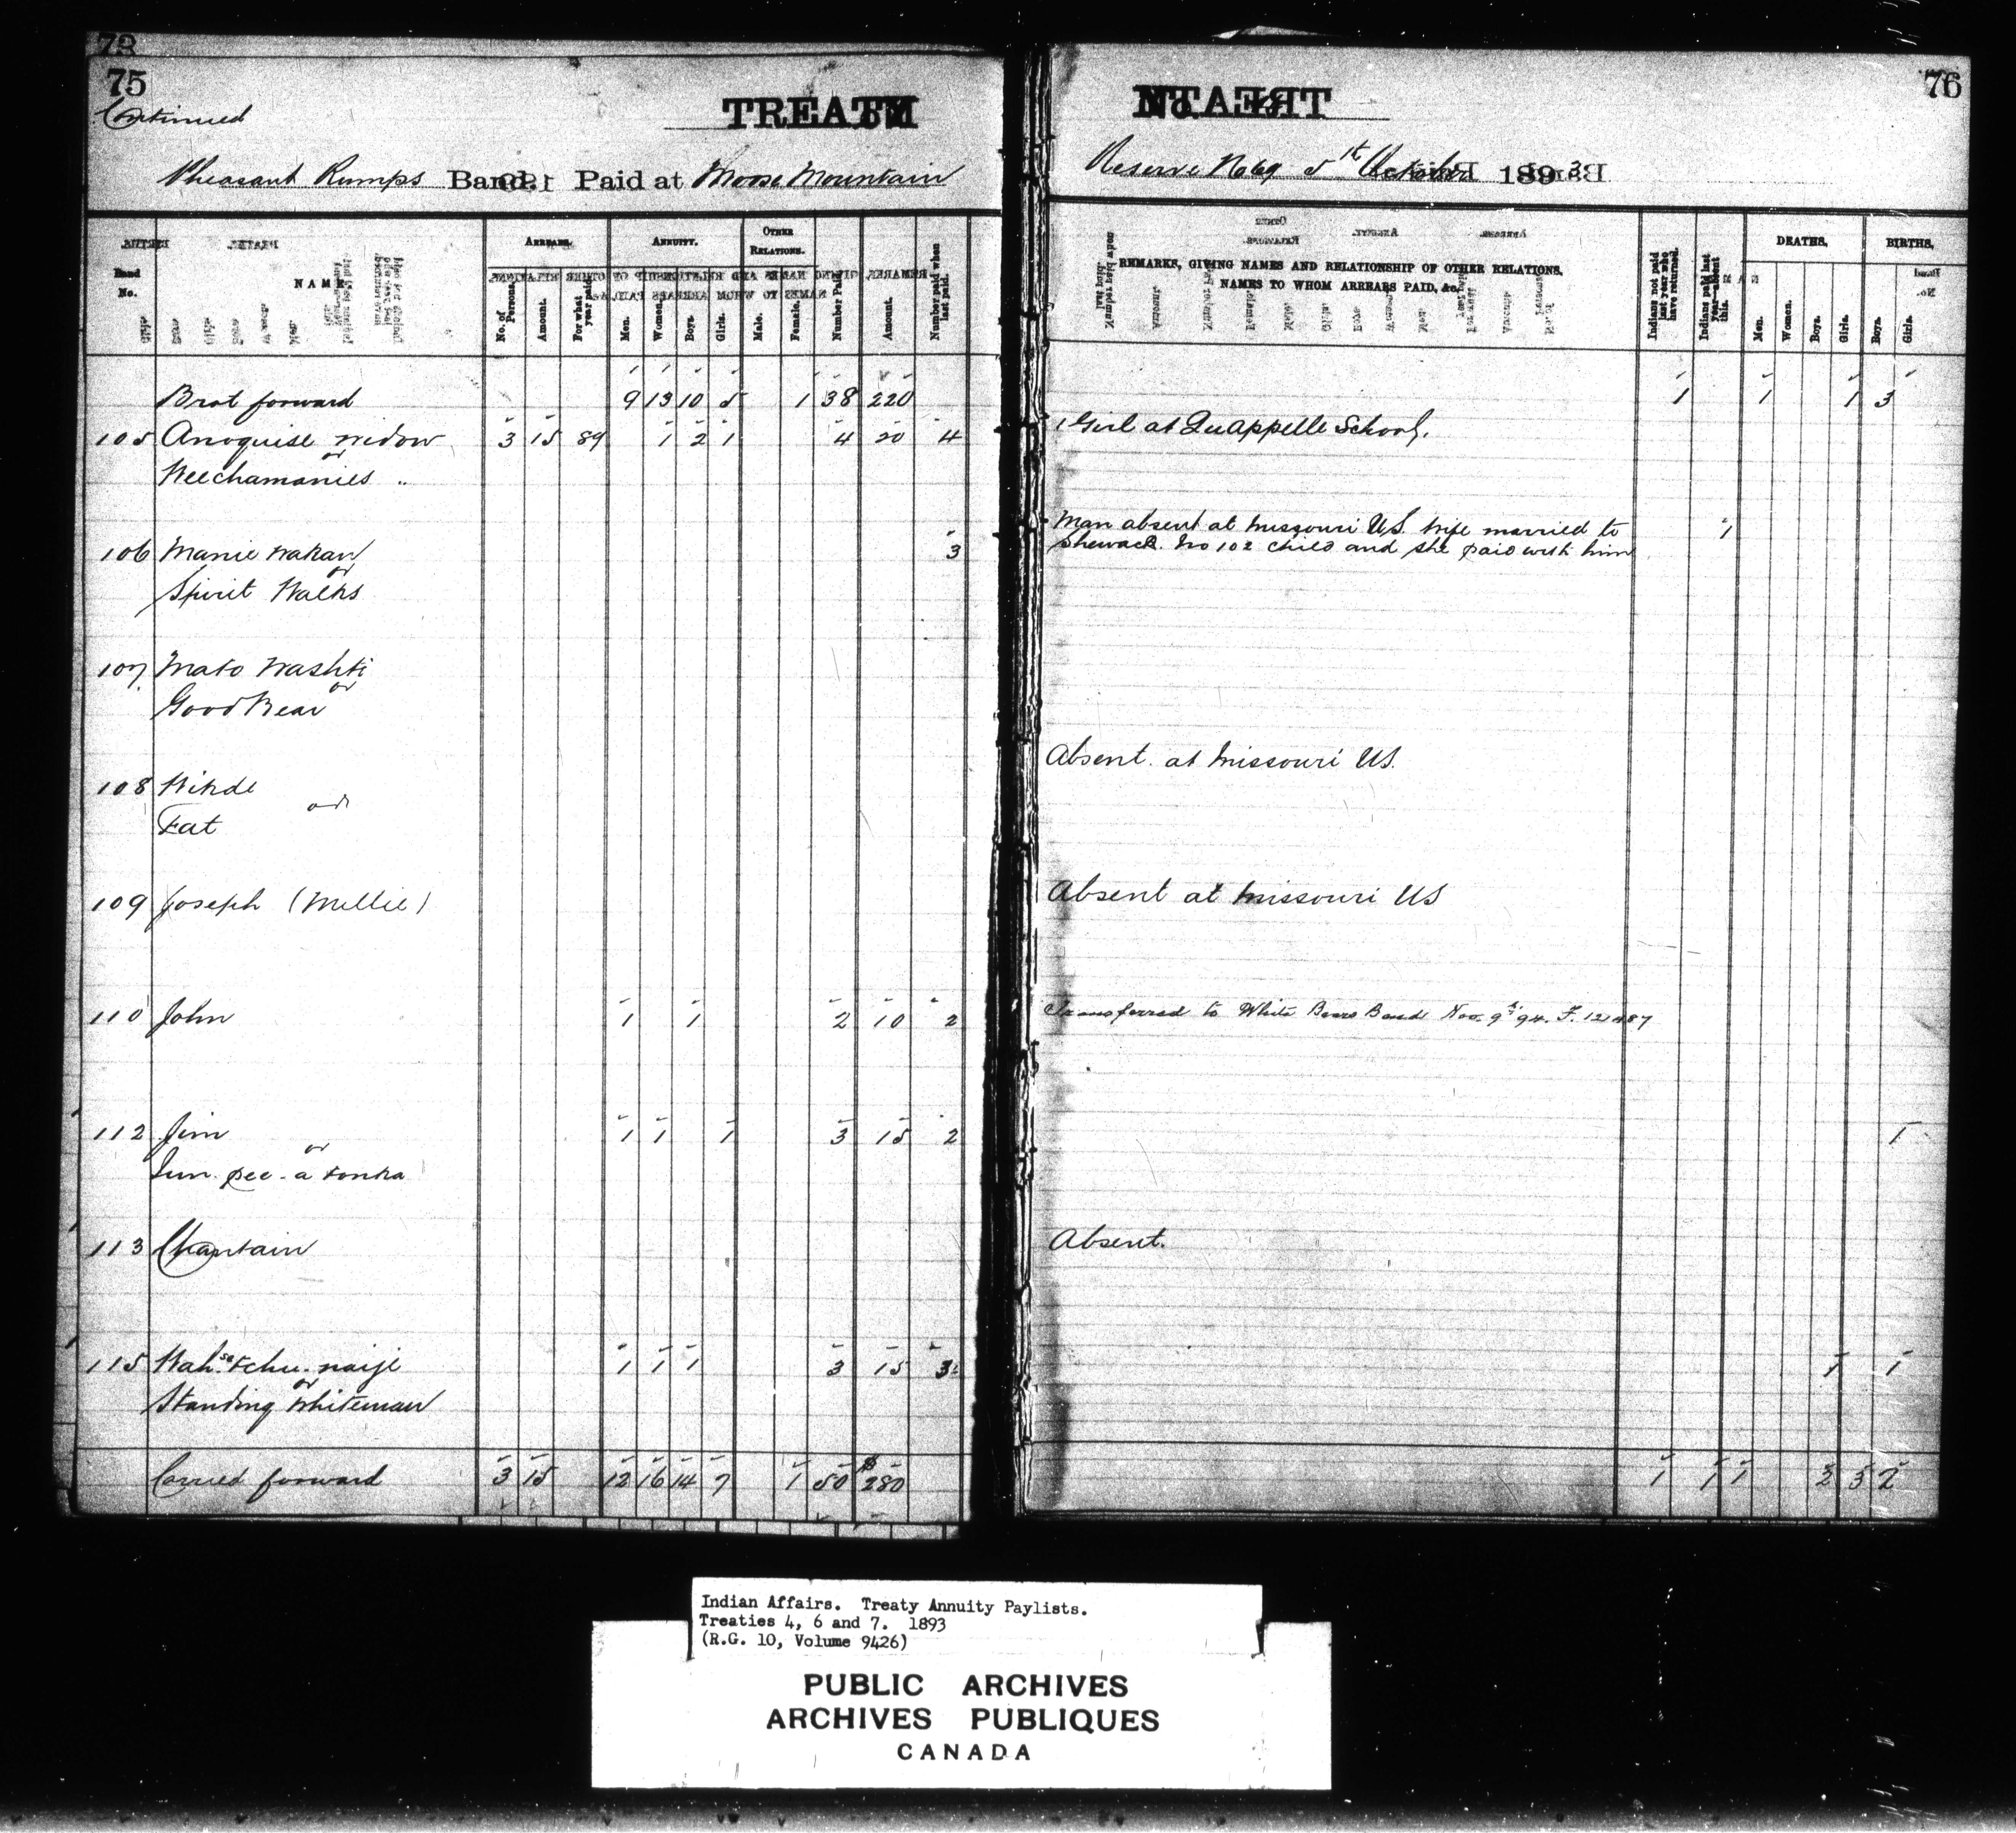 75
Continued
TREATY
Pheasant Rumps Band. Paid at Moose Mountain
Band No.
NAME
ARREARS.
No. of Persons.
Amount.
For what year paid.
ANNUITY.
Men.
Women.
Boys.
Girls.
OTHER RELATIONS.
Male.
Female.
Number Paid.
Amount.
Number paid when last paid.
Brot forward 9 13 10 5 1 38 220
105 Anoquise widow 3 15 89 1 2 1 4 20 4
or
Weechamanies "
106 Manie Wakan 3
or
Spirit Walks
107 Mato Washti
or
Good Bear
108 Wikde
or
Fat
109 Joseph (Mellie)
110 John 1 1 2 10 2
112 Jim 1 1 1 3 15 2
or
Sun-pee-a tonka
113 Chantain
115 Wah-se-tchu-naije 1 1 1 3 15 3
or
Standing Whiteman
Carried forward 3 15 12 16 14 7 1 50 $280
76
Reserve No 69 October 1893
REMARKS, GIVING NAMES AND RELATIONSHIP OF OTHER RELATIONS,
NAMES TO WHOM ARREARS PAID, &c.
Indians not paid last year who have returned.
Indians paid last year—absent this.
DEATHS,
Men.
Women.
Boys.
Girls.
BIRTHS,
Boys.
Girls.
1 1 1 3
1 Girl at Quappelle School.
Man absent at Missouri U.S. Wife married to 1
Shewack No 102 child and she paid with him
Absent at Missouri US.
Absent at Missouri US
Transferred to White Bears Band Nov. 9th 94. F.
1
Absent.
1 1
1 1 1 2 3 2
Indian Affairs. Treaty Annuity Paylists.
Treaties 4, 6 and 7. 1893
(R.G. 10, Volume 9426)
PUBLIC ARCHIVES
ARCHIVES PUBLIQUES
CANADA